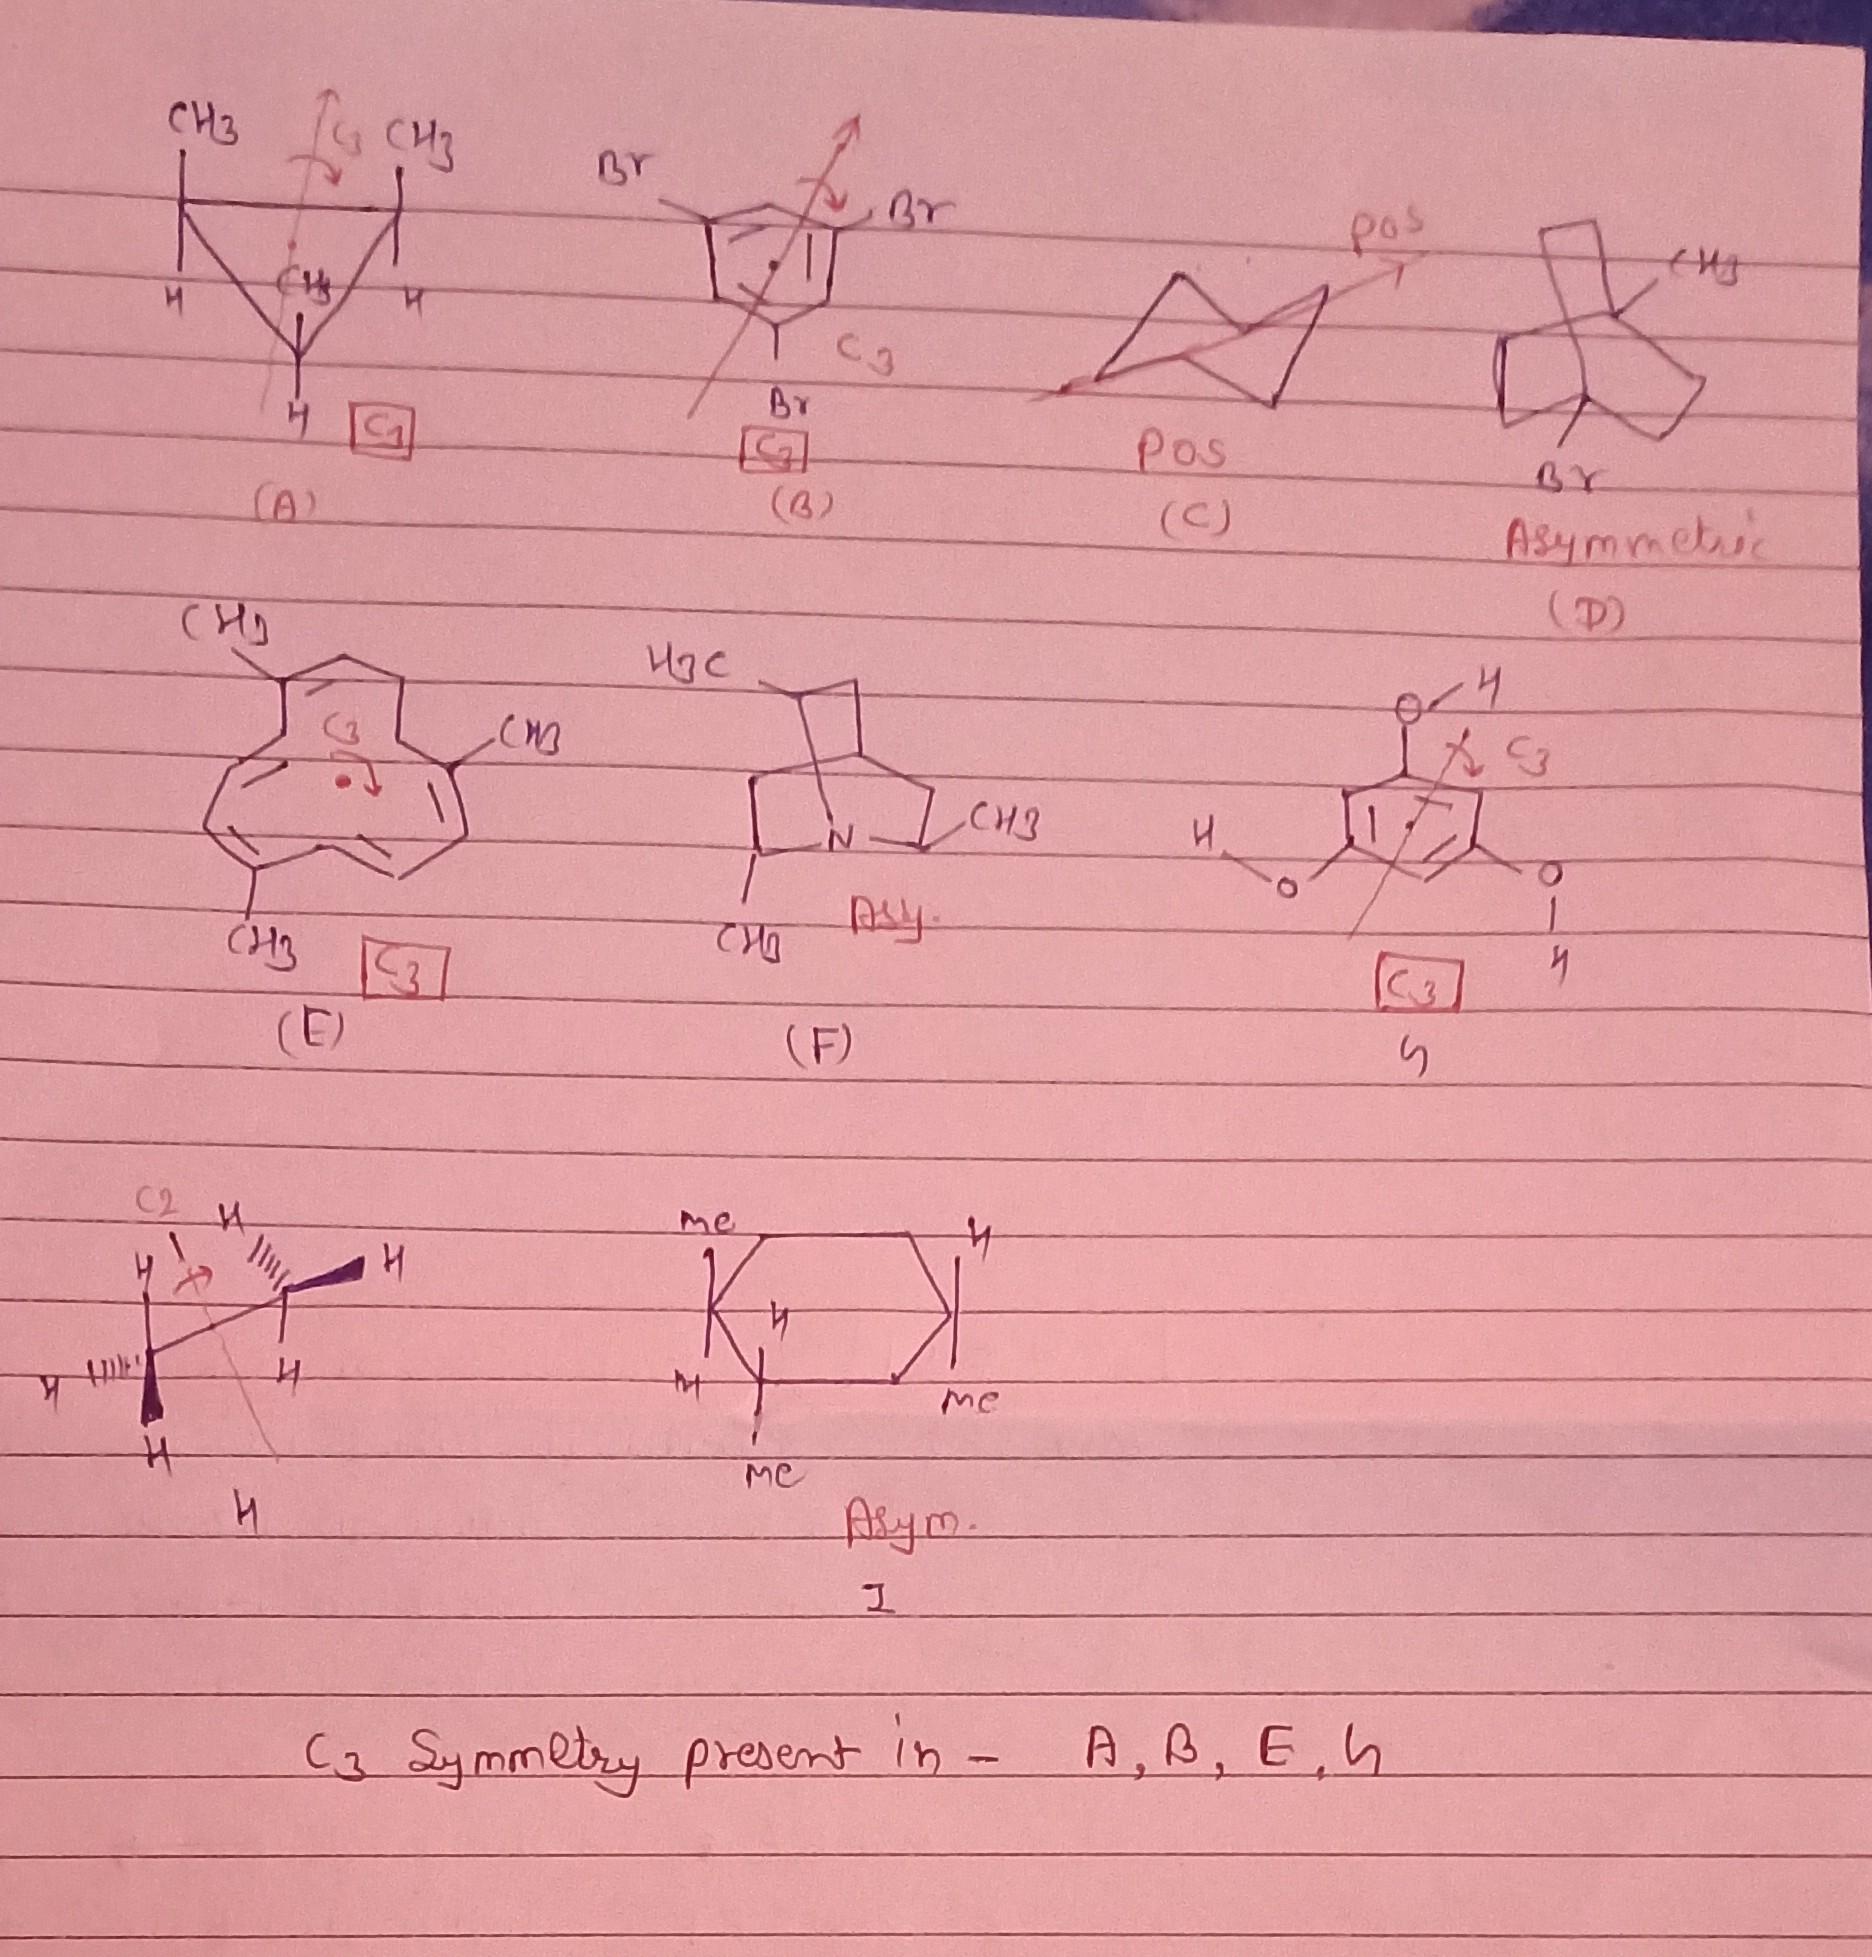 CH3 C3 CH3
H CH3 H
H C3
(A)
Br Br
C3
Br
C3
(B)
POS
POS
(C)
CH3
Br
Asymmetric
(D)
CH3
C3 CH3
CH3 C3
(E)
H3C
N CH3
CH3 Asy.
(F)
O H
C3
H O O
H
C3
G
C2 H
H H
H H
H
H
Me H
H
H Me
Me
Asym.
I
C3 Symmetry present in - A, B, E, G